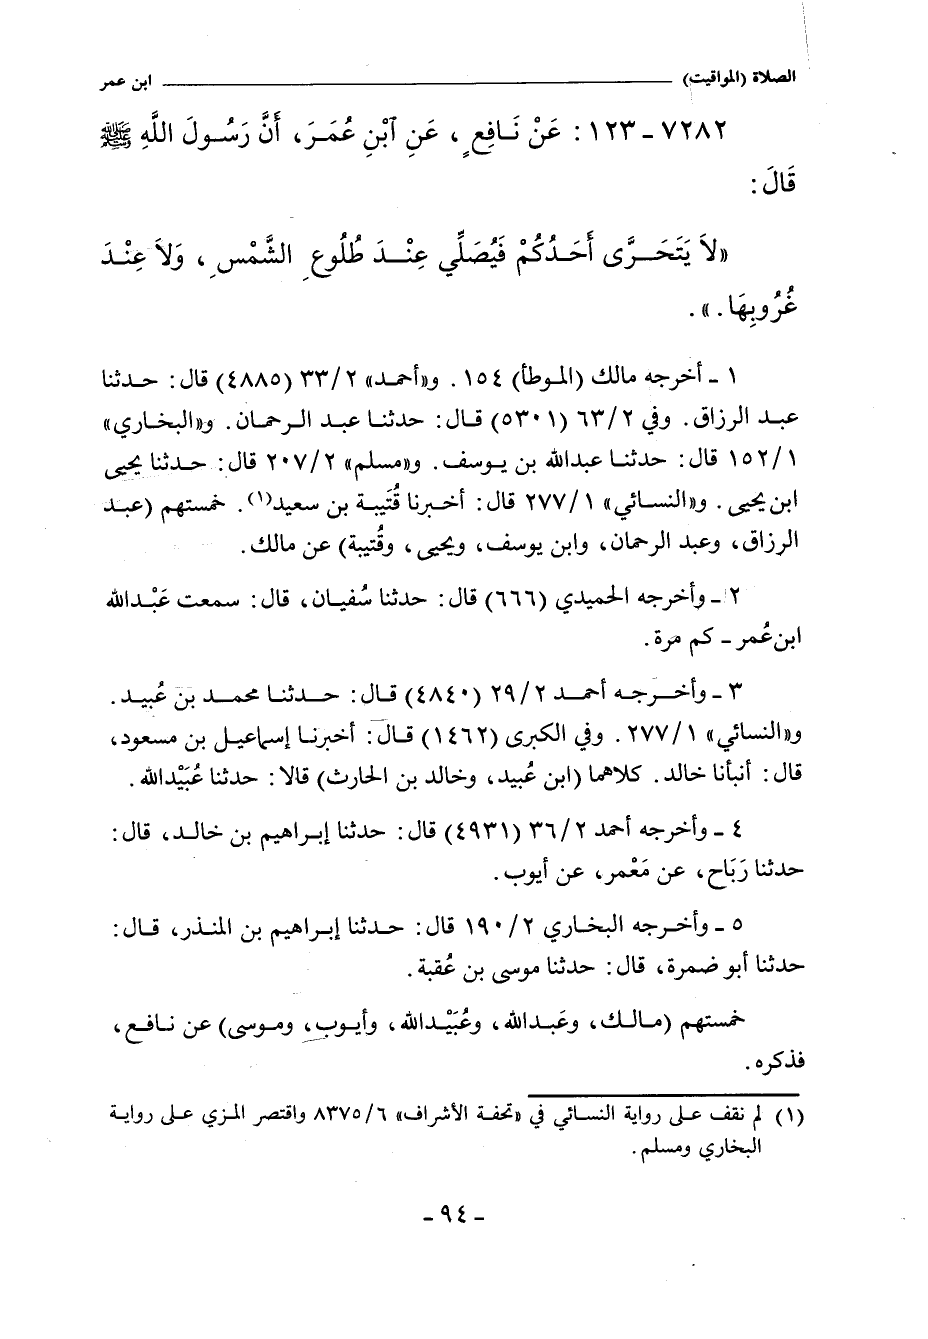 الصلاة (المواقيت) ابن عمر
٧٢٨٢ ـ ١٢٣ : عَنْ نَافِعٍ ، عَنِ آبْنِ عُمَرَ، أَنَّ رَسُولَ اللَّهِ ﷺ
قَالَ :
«لاَ يَتَحَرَّى أَحَدُكُمْ فَيُصَلِّي عِنْدَ طُلُوعِ الشَّمْسِ ، وَلاَ عِنْدَ
غُرُوبِهَا . » .
١ ـ أخرجه مالك (الموطأ) ١٥٤ . و«أحمد» ٣٣/٢ (٤٨٨٥) قال : حدثنا
عبد الرزاق . وفي ٦٣/٢ (٥٣٠١) قال : حدثنا عبد الرحمان . و«البخاري»
١٥٢/١ قال : حدثنا عبدالله بن يوسف . و«مسلم» ٢٠٧/٢ قال : حدثنا يحيى
ابن يحيى . و«النسائي» ٢٧٧/١ قال : أخبرنا قُتيبة بن سعيد(١) . خمستهم (عبد
الرزاق، وعبد الرحمان، وابن يوسف، ويحيى، وقُتيبة) عن مالك .
٢ ـ وأخرجه الحميدي (٦٦٦) قال : حدثنا سُفيان، قال : سمعت عَبْدالله
ابن عُمر ـ كم مرة .
٣ ـ وأخرجه أحمد ٢٩/٢ (٤٨٤٠) قال : حدثنا محمد بن عُبيد .
و«النسائي» ٢٧٧/١ . وفي الكبرى (١٤٦٢) قال : أخبرنا إسماعيل بن مسعود،
قال : أنبأنا خالد . كلاهما (ابن عُبيد، وخالد بن الحارث) قالا : حدثنا عُبَيْدالله .
٤ ـ وأخرجه أحمد ٣٦/٢ (٤٩٣١) قال : حدثنا إبراهيم بن خالد، قال :
حدثنا رَبَاح، عن مَعْمر، عن أيوب .
٥ ـ وأخرجه البخاري ١٩٠/٢ قال : حدثنا إبراهيم بن المنذر، قال :
حدثنا أبو ضمرة، قال : حدثنا موسى بن عُقبة .
خمستهم (مالك، وعَبدالله، وعُبَيْدالله، وأيوب، وموسى) عن نافع،
فذكره .
(١) لم نقف على رواية النسائي في «تحفة الأشراف» ٨٣٧٥/٦ واقتصر المزي على رواية
البخاري ومسلم .
ـ ٩٤ ـ